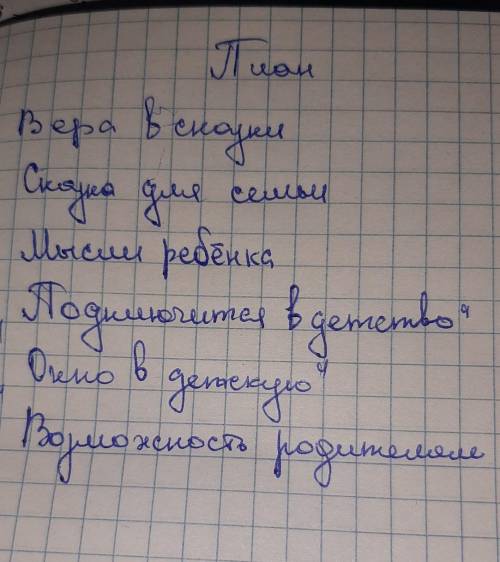 План
Вера в сказки
Сказка для семьи
Мысли ребёнка
Подключится в детство"
Окно в детскую"
Возможность родителям